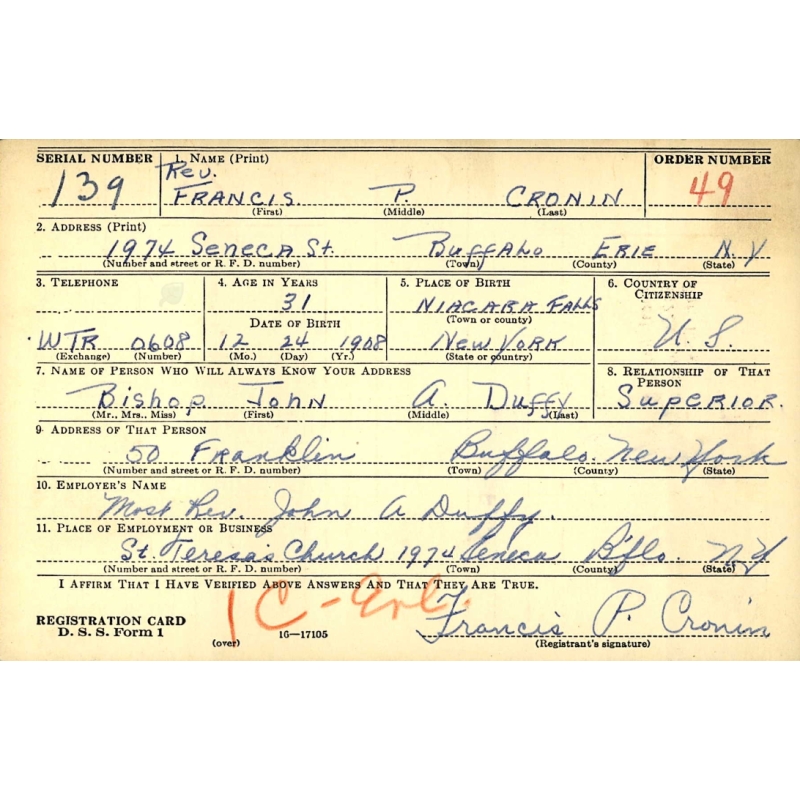 SERIAL NUMBER 1. NAME (Print) ORDER NUMBER
Rev.
139 FRANCIS. P. CRONIN 49
(First) (Middle) (Last)
2. ADDRESS (Print)
1974 Seneca St. Buffalo ERIE N.Y
(Number and street or R. F. D. number) (Town) (County) (State)
3. TELEPHONE 4. AGE IN YEARS 5. PLACE OF BIRTH 6. COUNTRY OF
CITIZENSHIP
31 NIAGARA FALLS
DATE OF BIRTH (Town or county)
WTR 0608 12 24 1908 New York U. S.
(Exchange) (Number) (Mo.) (Day) (Yr.) (State or country)
7. NAME OF PERSON WHO WILL ALWAYS KNOW YOUR ADDRESS 8. RELATIONSHIP OF THAT
PERSON
Bishop John A. Duffy Superior.
(Mr., Mrs., Miss) (First) (Middle) (Last)
9. ADDRESS OF THAT PERSON
50 Franklin Buffalo. New York
(Number and street or R. F. D. number) (Town) (County) (State)
10. EMPLOYER'S NAME
Most Rev. John A Duffy.
11. PLACE OF EMPLOYMENT OR BUSINESS
St. Teresa's Church 1974 Seneca B'flo. N.Y
(Number and street or R. F. D. number) (Town) (County) (State)
I AFFIRM THAT I HAVE VERIFIED ABOVE ANSWERS AND THAT THEY ARE TRUE.
REGISTRATION CARD
D. S. S. Form 1 Francis P. Cronin
(over) 16—17105 (Registrant's signature)